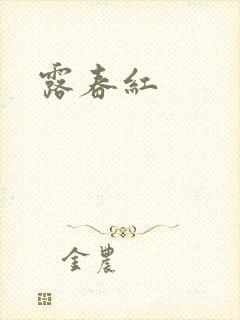 露春紅
金農